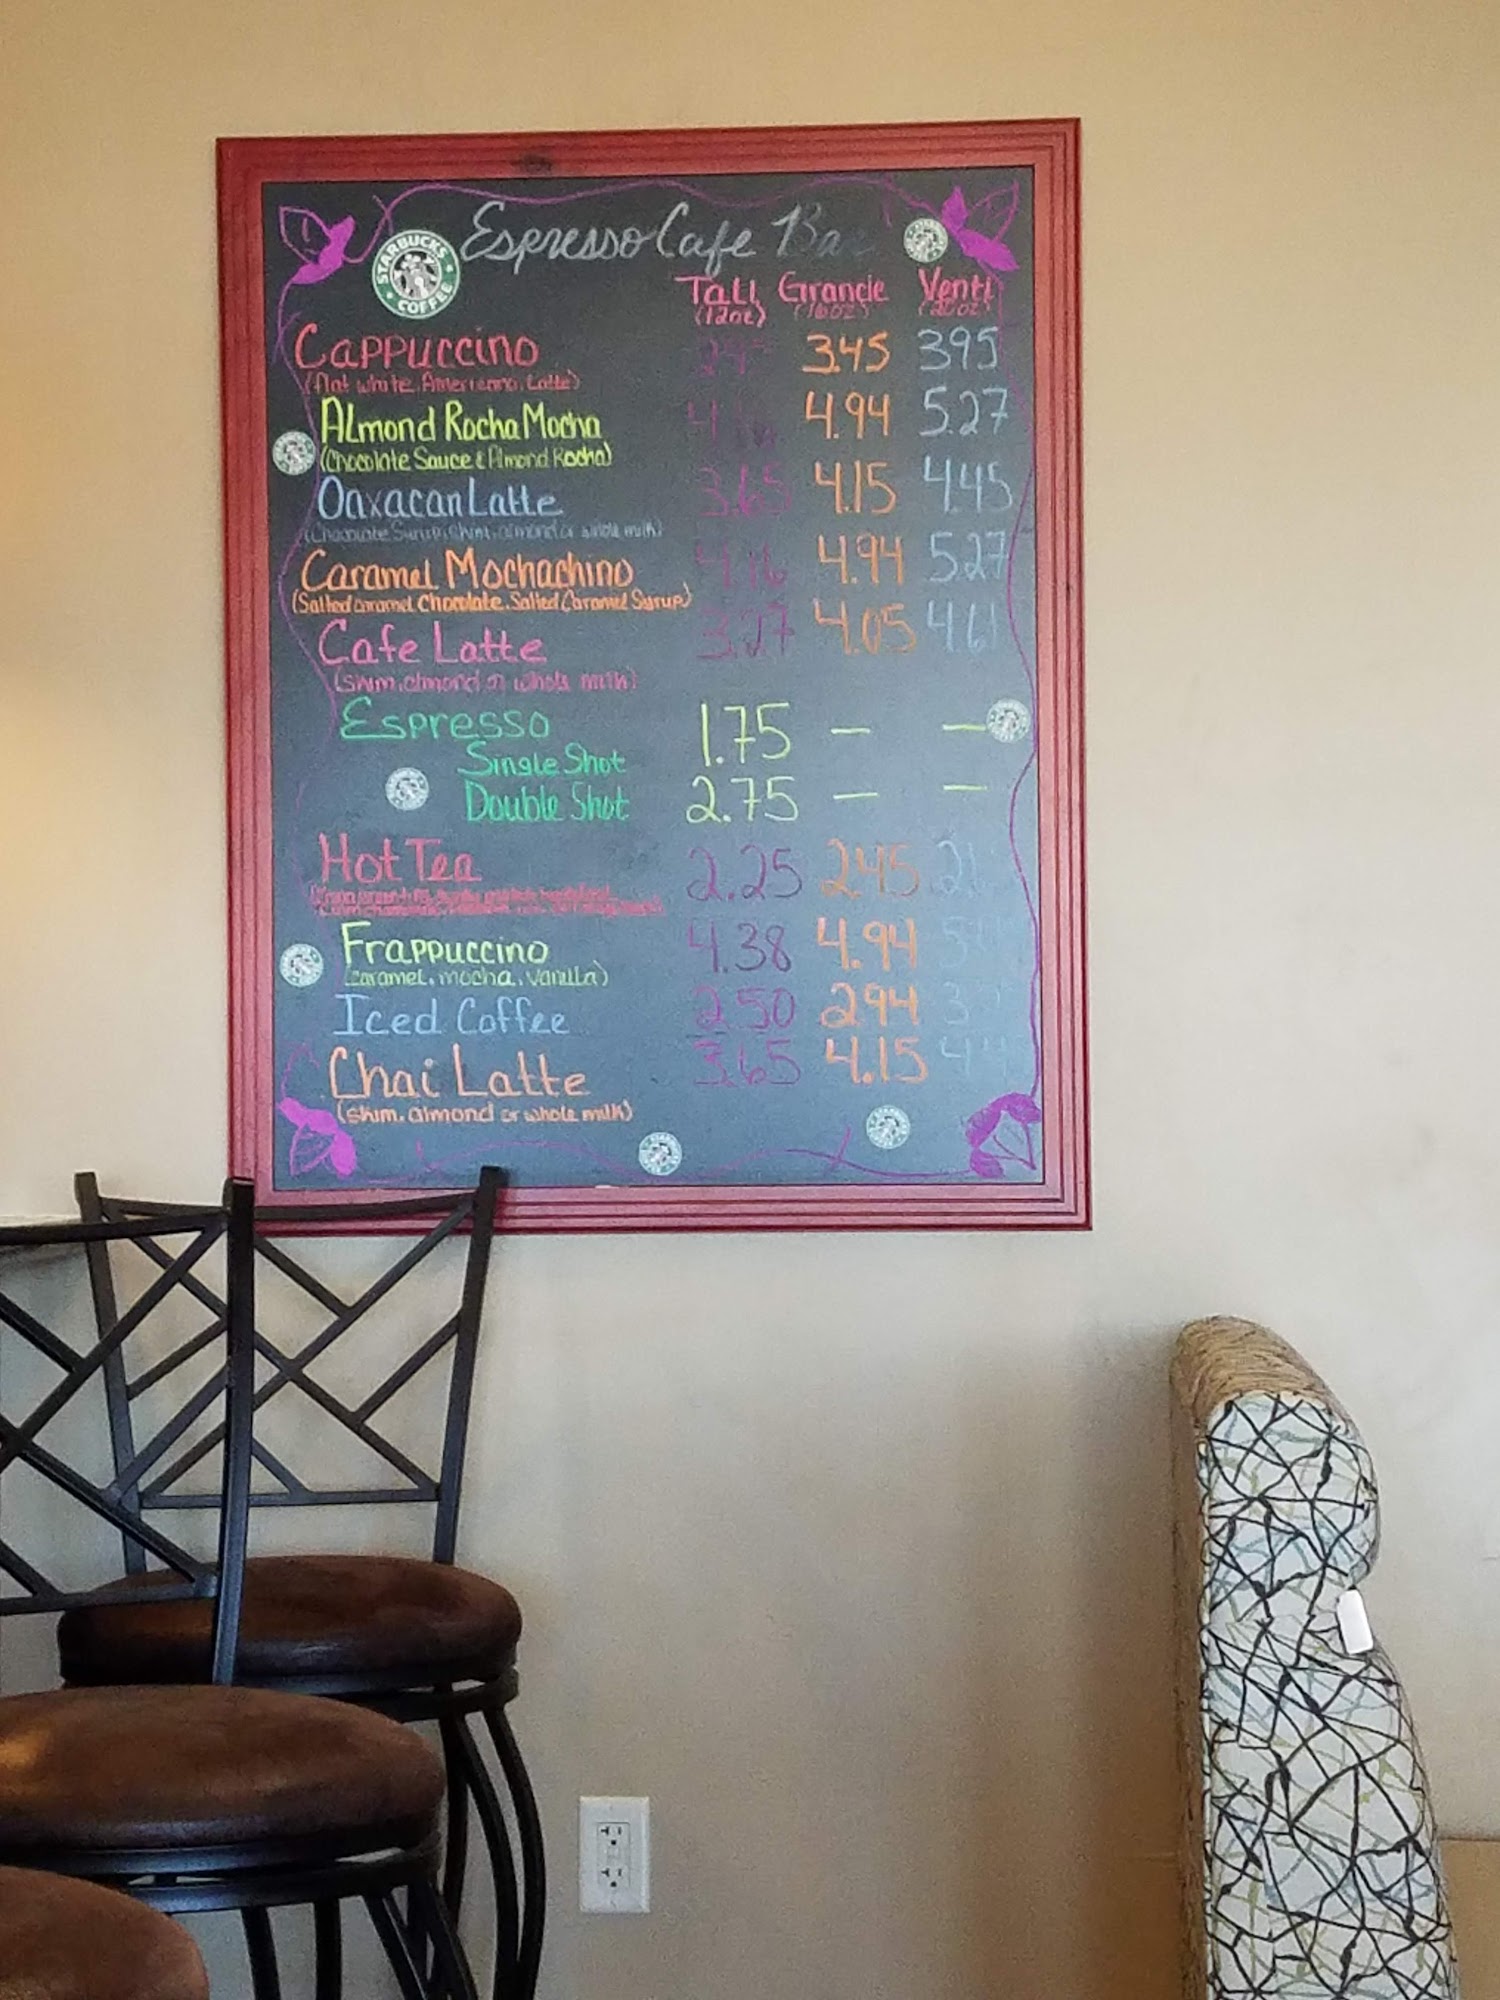 STARBUCKS COFFEE
Espresso Cafe Bar
Tall Grande Venti
(12oz) (16oz) (20oz)
Cappuccino 3.45 3.95
(flat white, Americano, Latte)
Almond Rocha Mocha 4.94 5.27
(Chocolate Sauce & Almond Rocha)
Oaxacan Latte 3.65 4.15 4.45
(skim, almond or whole milk)
Caramel Mochachino 4.16 4.94 5.27
(Salted caramel Chocolate, Salted Caramel Syrup)
Cafe Latte 3.27 4.05 4.61
(skim, almond or whole milk)
Espresso 1.75 – –
Single Shot
Double Shot 2.75 – –
Hot Tea 2.25 2.45
Frappuccino 4.38 4.94
(caramel, mocha, vanilla)
Iced Coffee 2.50 2.94
Chai Latte 3.65 4.15
(skim, almond or whole milk)